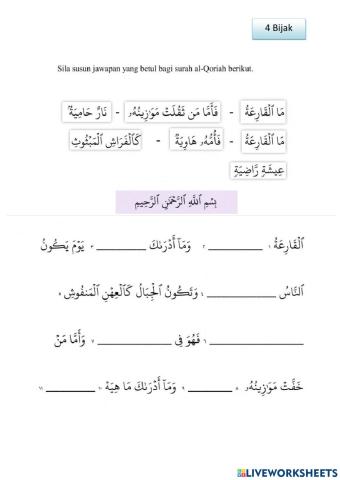 4 Bijak
Sila susun jawapan yang betul bagi surah al-Qoriah berikut.
مَا الْقَارِعَةُ - فَأَمَّا مَن ثَقُلَتْ مَوَٰزِينُهُۥ - نَارٌ حَامِيَةٌۢ
مَا الْقَارِعَةُ - فَأُمُّهُۥ هَاوِيَةٌ - كَالْفَرَاشِ الْمَبْثُوثِ
عِيشَةٍ رَّاضِيَةٍ
بِسْمِ اللَّهِ الرَّحْمَٰنِ الرَّحِيمِ
الْقَارِعَةُ ١ __________ ٢ وَمَآ أَدْرَىٰكَ __________ ٣ يَوْمَ يَكُونُ
النَّاسُ __________ ٤ وَتَكُونُ الْجِبَالُ كَالْعِهْنِ الْمَنفُوشِ ٥
__________ ٦ فَهُوَ فِى __________ ٧ وَأَمَّا مَنْ
خَفَّتْ مَوَٰزِينُهُۥ ٨ __________ ٩ وَمَآ أَدْرَىٰكَ مَا هِيَهْ ١٠ __________ ١١
LIVEWORKSHEETS